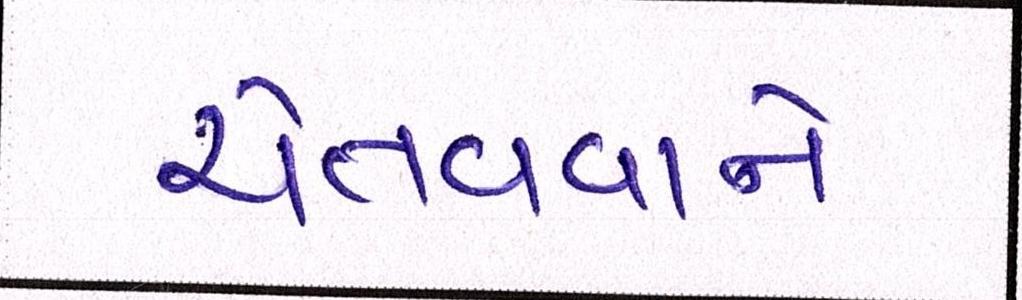 ચેતવવાને